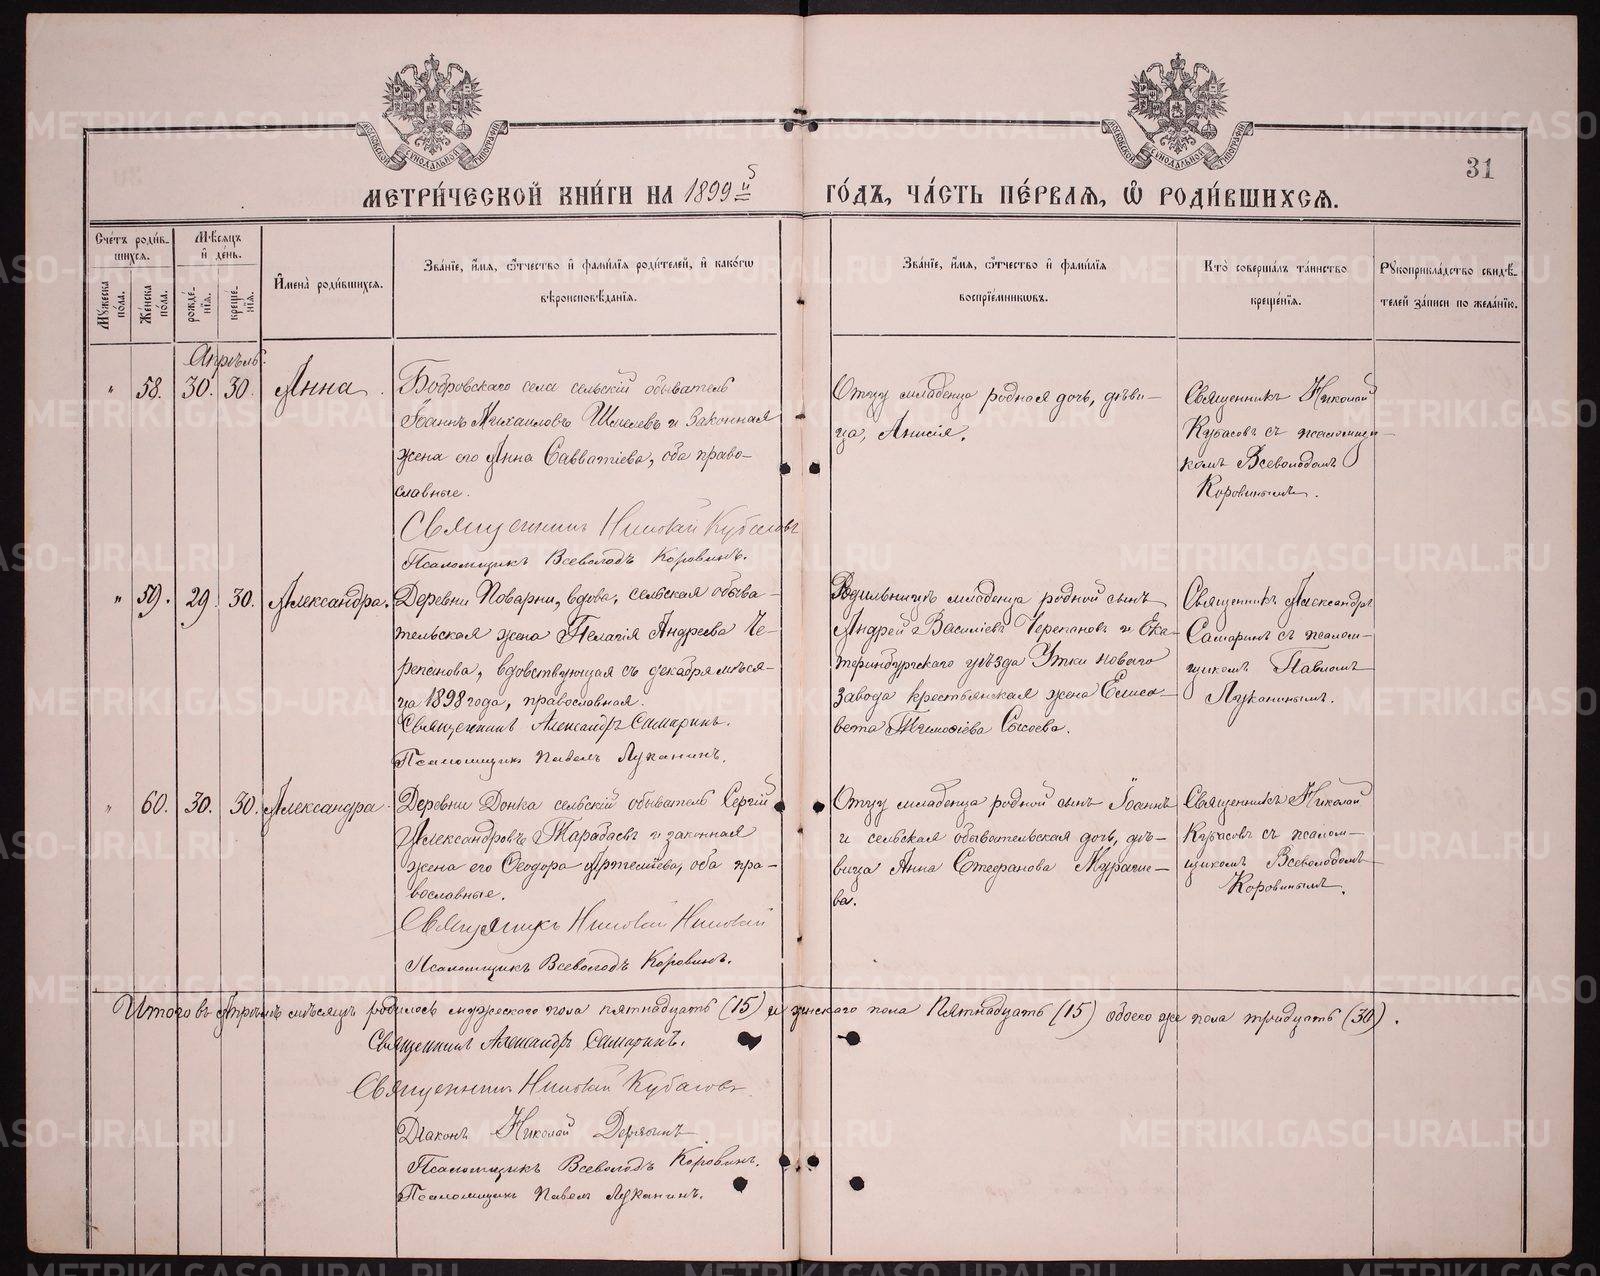 МОСКОВСКОЙ СѴНОДАЛЬНОЙ ТИПОГРАФІИ
МОСКОВСКОЙ СѴНОДАЛЬНОЙ ТИПОГРАФІИ
31
МЕТРИ́ЧЕСКОЙ КНИ́ГИ НА 1899й ГО́ДЪ, ЧА́СТЬ ПЕ́РВАѦ, Ѽ РОДИ́ВШИХСѦ.
Сче́тъ роди́в-
шихсѧ.
Мѣ́сѧцъ
и҆ де́нь.
Мꙋ́жеска по́ла.
Же́нска по́ла.
рожде́-
нїѧ.
креще́-
нїѧ.
И҆мена̀ роди́вшихсѧ.
Зва́нїе, и҆́мѧ, ѻ҆́тчество и҆ фами́лїѧ роди́телей, и҆ како́гѡ
вѣроисповѣ́данїѧ.
Зва́нїе, и҆́мѧ, ѻ҆́тчество и҆ фами́лїѧ
воспрїе́мникѡвъ.
Кто̀ соверша́лъ та́инство
креще́нїѧ.
Рꙋкоприкла́дство свидѣ́-
телей за́писи по жела́нїю.
Апрѣль.
" 58. 30. 30. Анна.
Бобровскаго села сельскій обыватель
Іоаннъ Михаиловъ Шмелевъ и законная
жена его Анна Савватіева, оба право-
славные.
Священникъ Николай Кубасовъ
Псаломщикъ Всеволодъ Коровинъ.
Отцу младенца родная дочь, дѣви-
ца, Анисія.
Священникъ Николай
Кубасовъ съ псаломщи-
комъ Всеволодомъ
Коровинымъ.
" 59. 29. 30. Александра.
Деревни Поварни, вдова, сельская обыва-
тельская жена Пелагія Андреева Че-
репанова, вдовствующая съ декабря мѣся-
ца 1898 года, православная.
Священникъ Александръ Самаринъ.
Псаломщикъ Павелъ Луканинъ.
Родильницы младенца родной сынъ
Андрей Василіевъ Черепановъ и Ека-
теринбургскаго уѣзда Утки новаго
завода крестьянская жена Елиса-
вета Тимоѳіева Сысоева.
Священникъ Александръ
Самаринъ съ псалом-
щикомъ Павломъ
Луканинымъ.
" 60. 30. 30. Александра
Деревни Донка сельскій обыватель Сергій
Александровъ Тарабаевъ и законная
жена его Ѳеодора Артеміева, оба пра-
вославные.
Священникъ Николай Николай
Псаломщикъ Всеволодъ Коровинъ.
Отцу младенца родной сынъ Іоаннъ
и сельская обывательская дочь, дѣ-
вица Анна Стефанова
ва.
Священникъ Николай
Кубасовъ съ псалом-
щикомъ Всеволодомъ
Коровинымъ.
Итого въ Апрѣлѣ мѣсяцѣ родилось мужескаго пола пятнадцать (15) и женскаго пола пятнадцать (15) обоего же пола тридцать (30).
Священникъ Александръ Самаринъ.
Священникъ Николай Кубасовъ
Діаконъ Николай Дерягинъ
Псаломщикъ Всеволодъ Коровинъ.
Псаломщикъ Павелъ Луканинъ.
METRIKI.GASO-URAL.RU